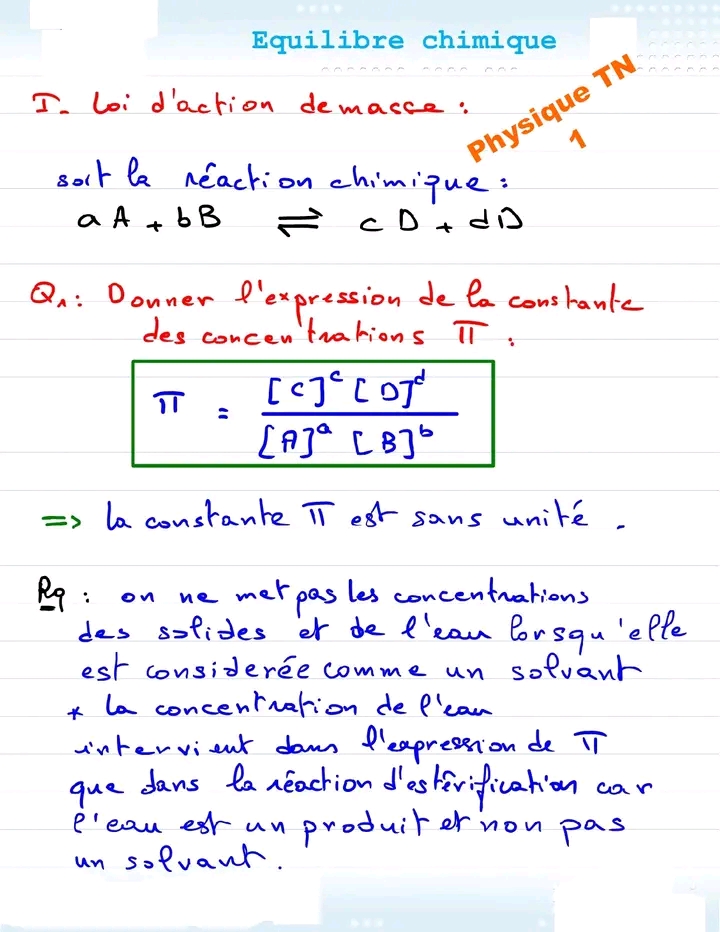 Equilibre chimique
Physique TN
1
I. Loi d'action de masse :
soit la réaction chimique :
a A + b B ⇌ c D + d D
Q1 : Donner l'expression de la constante
des concentrations π :
π = [C]^c [D]^d / [A]^a [B]^b
=> la constante π est sans unité .
Rq : on ne met pas les concentrations
des solides et de l'eau lorsqu'elle
est considerée comme un solvant
* la concentration de l'eau
intervient dans l'expression de π
que dans la réaction d'estérification car
l'eau est un produit et non pas
un solvant .